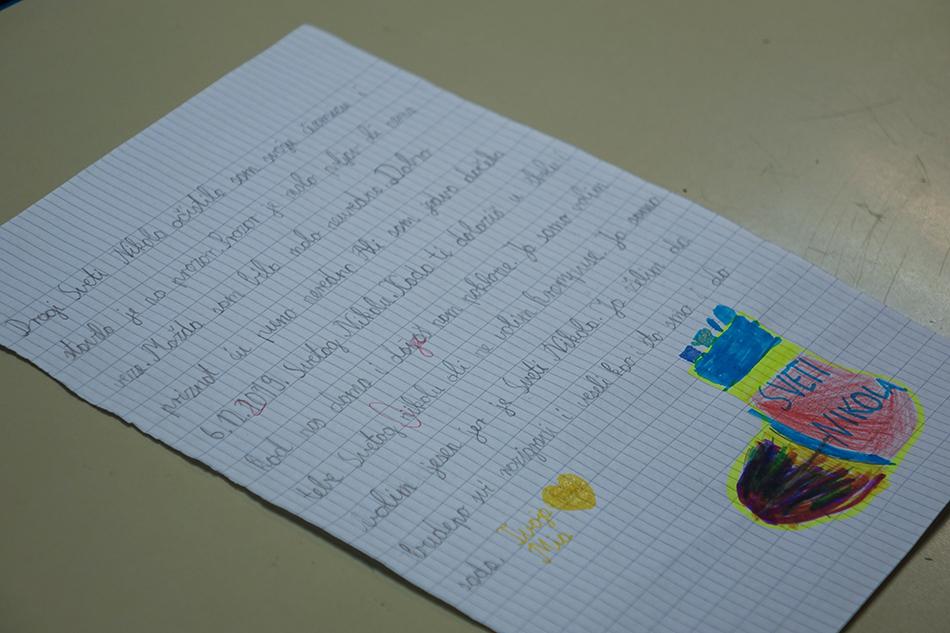 Dragi Sveti Nikola očistila sam svoju čizmicu i
stavila je na prozor. Prozor je malo prljav ali nema
veze. Možda sam bila malo neuredna. Dobro
priznat ću puno neuredna Ali sam jako
6.12.2019. Svetog Nikolu. Kada ti dolaziš u školu i
kod nas doma i nam poklone. Ja samo volim
tebe Svetog Nikolu ali ne volim krampusa. Ja samo
volim jesen jer je Sveti Nikola. Ja želim da
budemo svi razigrani i veseli kao što smo i do
sada.
Tvoja
Mia
SVETI
NIKOLA